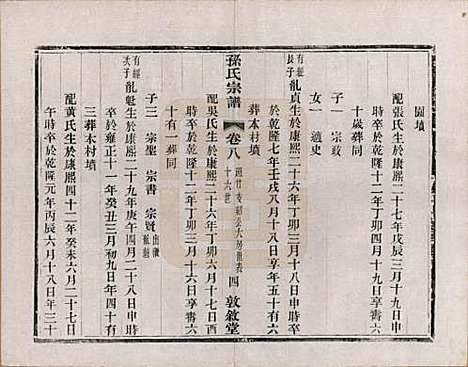 園墳
配張氏生於康熙二十七年戊辰三月十九日申
時卒於乾隆十二年丁卯三月十九日享壽六
十歲葬同
子一 宗歧
女一 適史
有經長子
胤貞生於康熙二十六年丁卯三月十一日
於乾隆七年壬戌八月十八日享年五十有六
葬本村墳
配吳氏生於康熙二十六年丁卯六月十七日酉
時卒於乾隆十二年丁卯三月十六日享壽六
十有一葬同
孫氏宗譜 卷八 十六世 四 敦敘堂
有經次子
胤魁生於康熙二十九年庚午四月二十八日
卒於雍正十一年癸丑三月初九日年四十有
四葬本村墳
子三 宗聖 宗書 宗賢
三葬本村墳
配黃氏生於康熙四十二年癸未六月二十八日
午時卒於乾隆元年丙辰六月十八日年三十